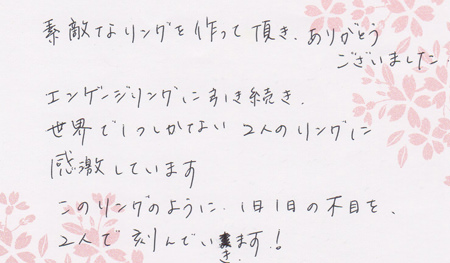 素敵なリングを作って頂き、ありがとう
ございました。
エンゲージリングに引き続き、
世界で1つしかない 2人のリングに
感激しています
このリングのように、1日1日の木目を、
2人で刻んでいきます!